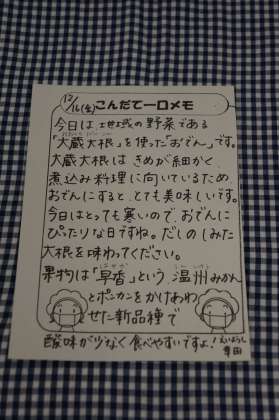 12/16(金)こんだて一口メモ
今日は、地域の野菜である
「大蔵大根」を使った「おでん」です。
大蔵大根は きめが細かく、
煮込み料理に向いているため、
おでんにすると、とても美味しいです。
今日はとっても寒いので、おでんに
ぴったりな日ですね。だしのしみた
大根を味わってください。
果物は「早香」という 温州みかん
とポンカンをかけあわ
せた新品種で
酸味が少なく食べやすいですよ!
えいようし